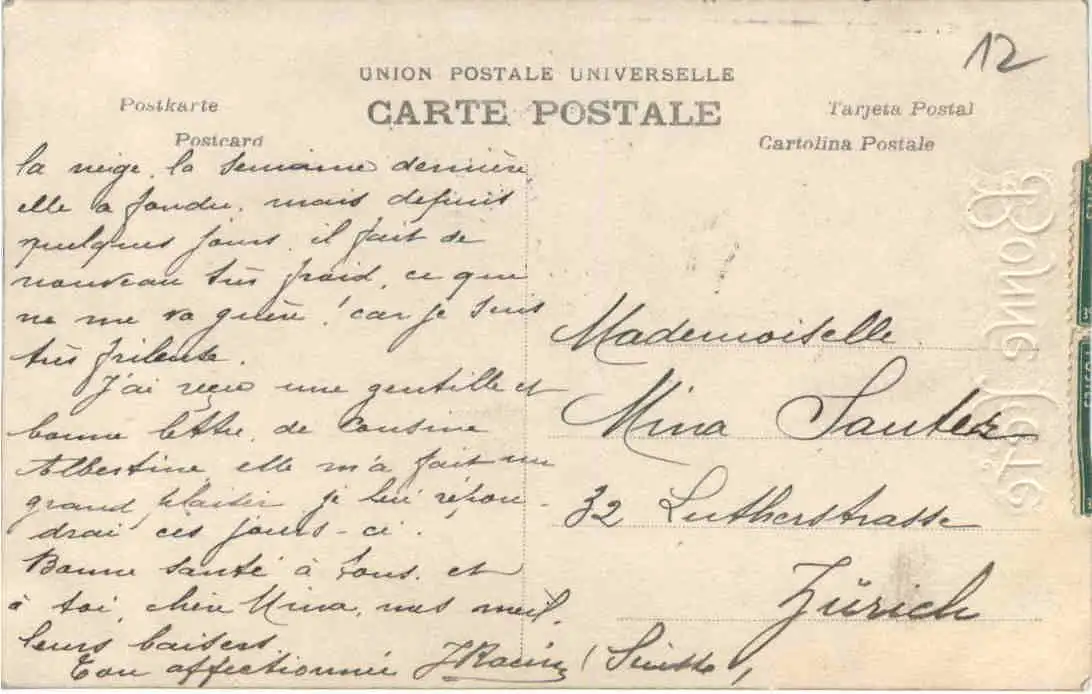 12
UNION POSTALE UNIVERSELLE
CARTE POSTALE
Postkarte
Postcard
Tarjeta Postal
Cartolina Postale
la neige la semaine dernière
elle a fondu, mais depuis
quelques jours il fait de
nouveau très froid, ce que
ne me va guère! car je suis
très frileuse.
J'ai reçu une gentille et
bonne lettre de cousine
Albertine, elle m'a fait un
grand plaisir je lui répon-
drai ces jours-ci.
Bonne santé à tous et
à toi, chère Mina, mes meil.
leurs baisers.
Ton affectionnée
Mademoiselle
Mina Sauter
32 Lutherstrasse
Zürich
(Suisse)
Bonne Fête